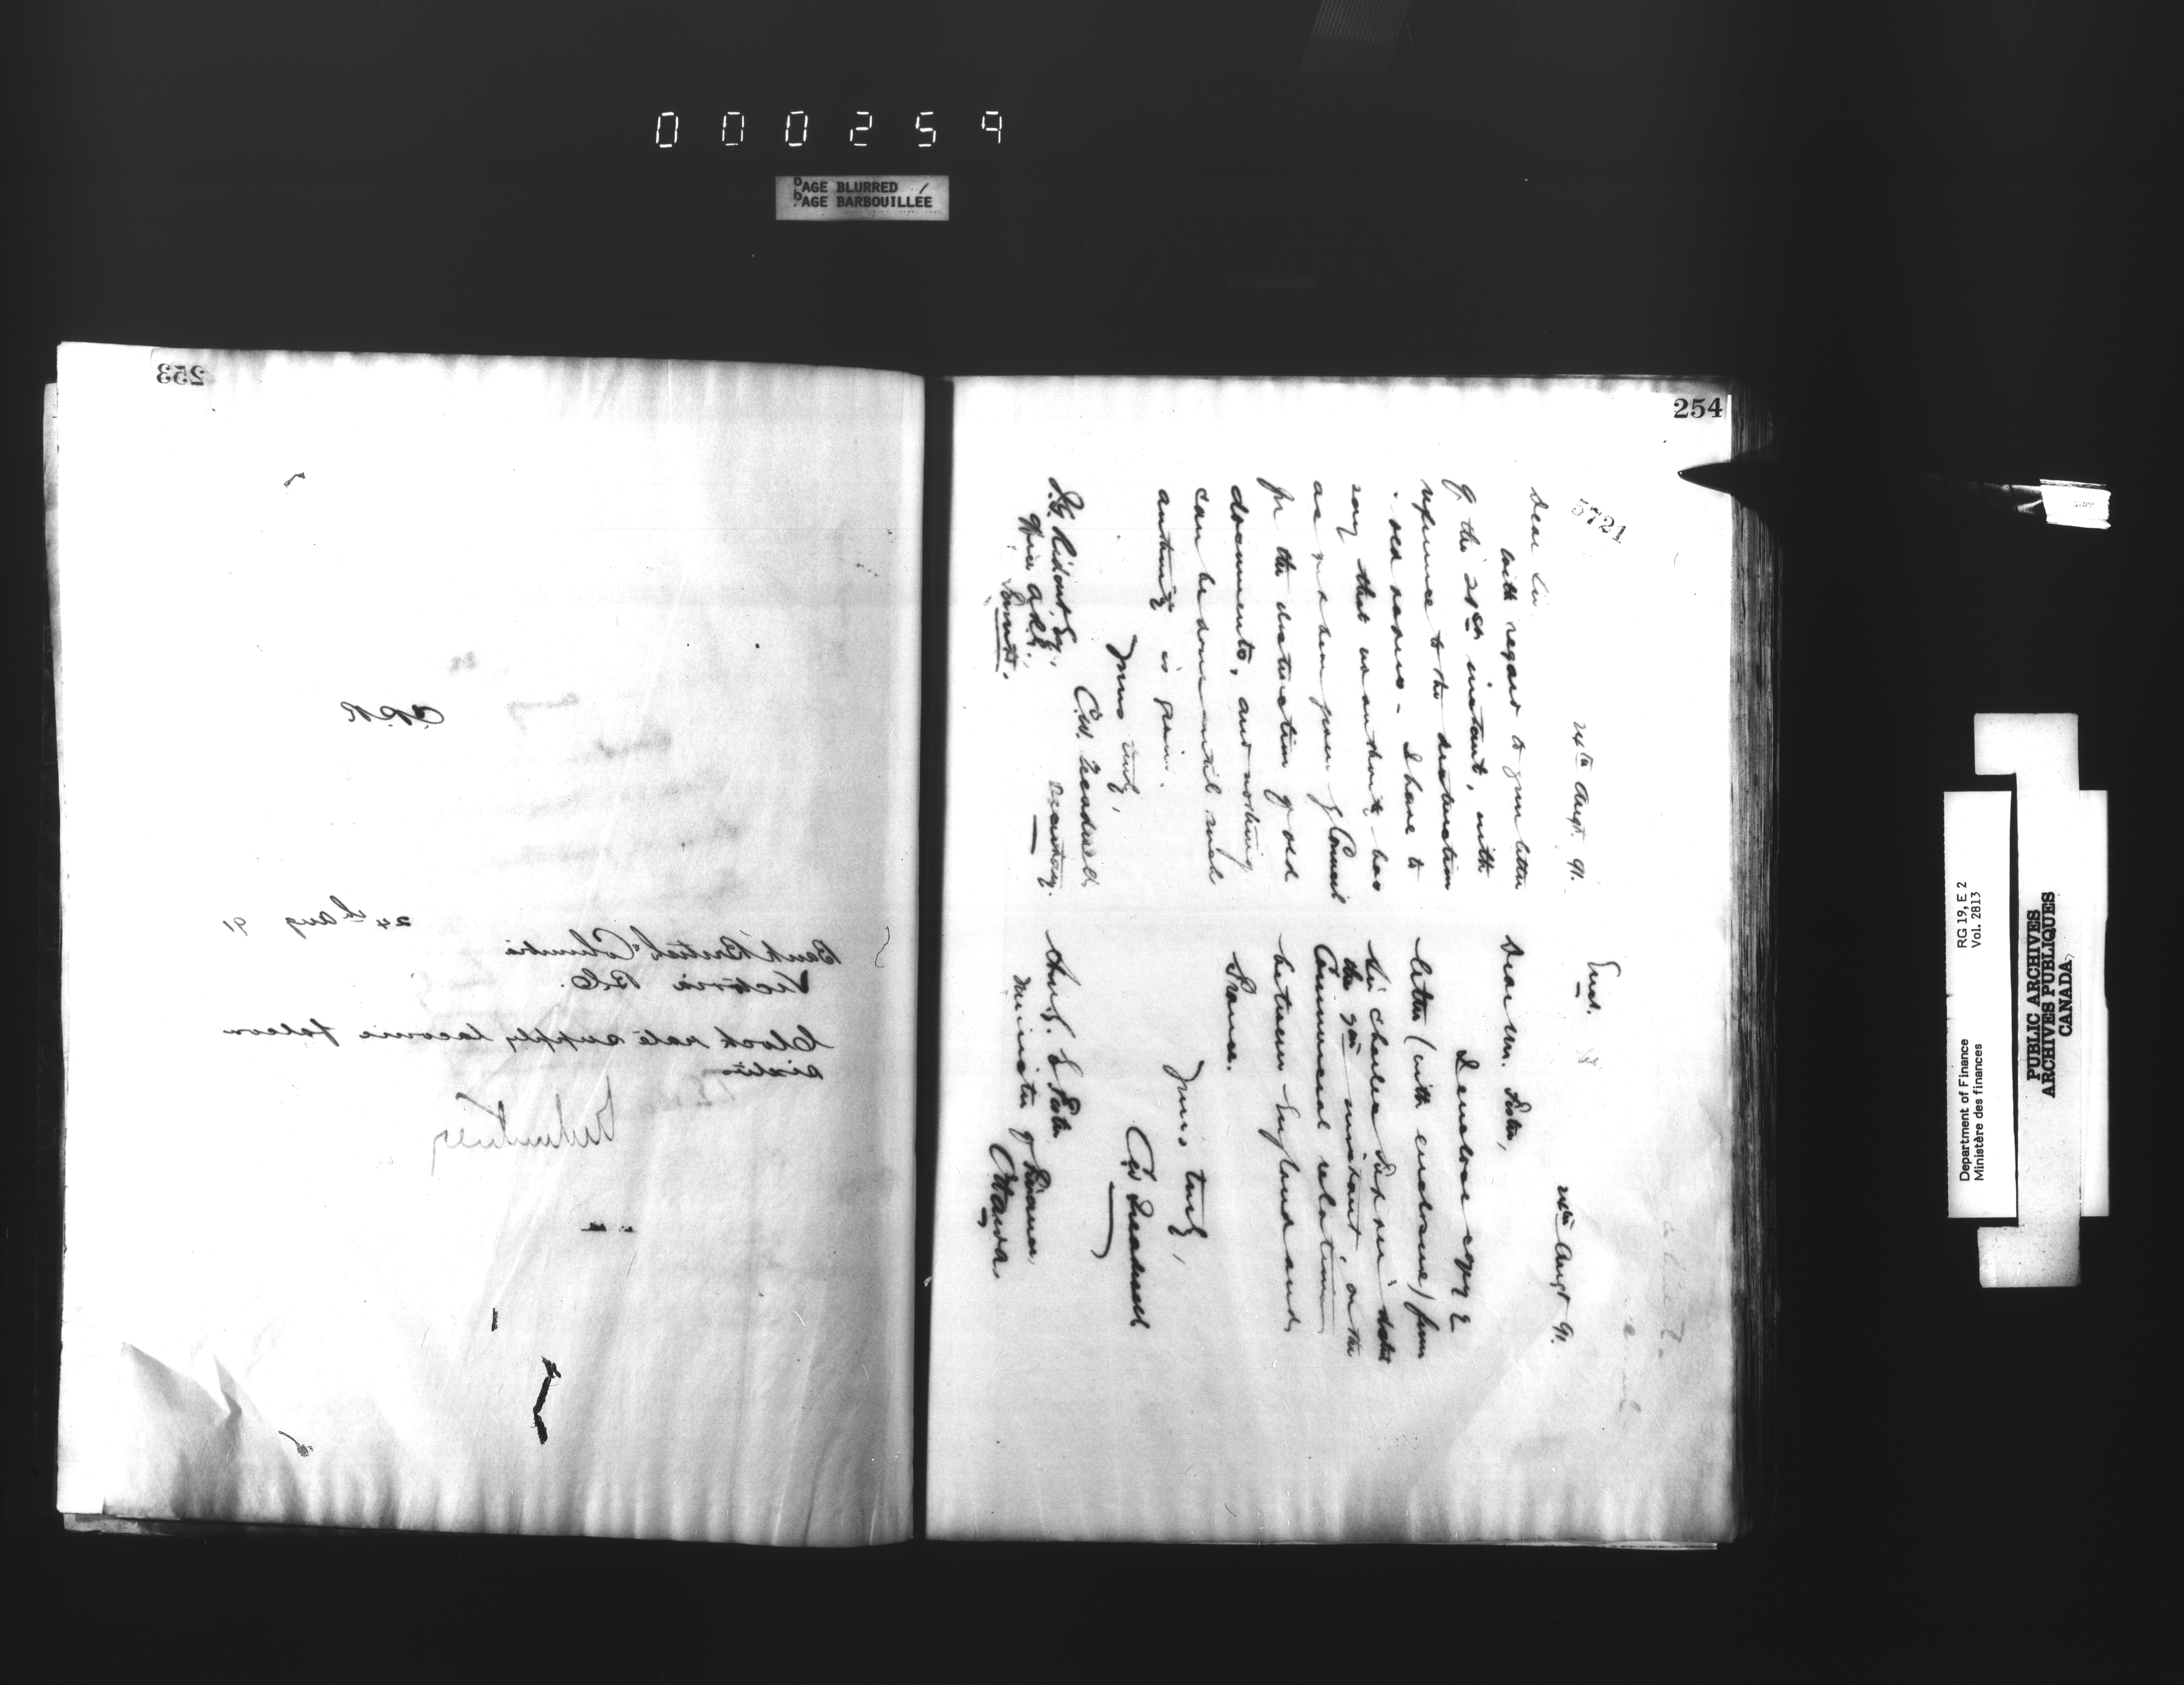 000259
PAGE BLURRED
PAGE BARBOUILLÉE
253
C.P.R
24th Aug 91
Bank British Columbia
Victoria B.C.
Clock rate supply laconic falcon
254
5721
24th Augt. 91.
Dear Sir
With regard to your letter
of the 21st instant, with
reference to the destruction
old I have to
say that no authority has
as yet been given by Council
for the destruction of old
documents, and nothing
can be done until such
authority is given.
Yours truly,
C.W. Treadwell
Secretary.
J.G. Ridout, Esq.,
Office A.R.G.,
Toronto.
Encl.
24th Augt 91.
Dear Mr. Foster,
I enclose copy of
letter (with enclosure) from
Sir Charles Tupper dated
the instant, on the
Commercial relations
between England and
France.
Yours truly,
C.W. Treadwell
Hon. G. E. Foster
Minister of Finance,
Ottawa.
Department of Finance RG 19, E 2
Ministère des finances Vol. 2813
PUBLIC ARCHIVES
ARCHIVES PUBLIQUES
CANADA